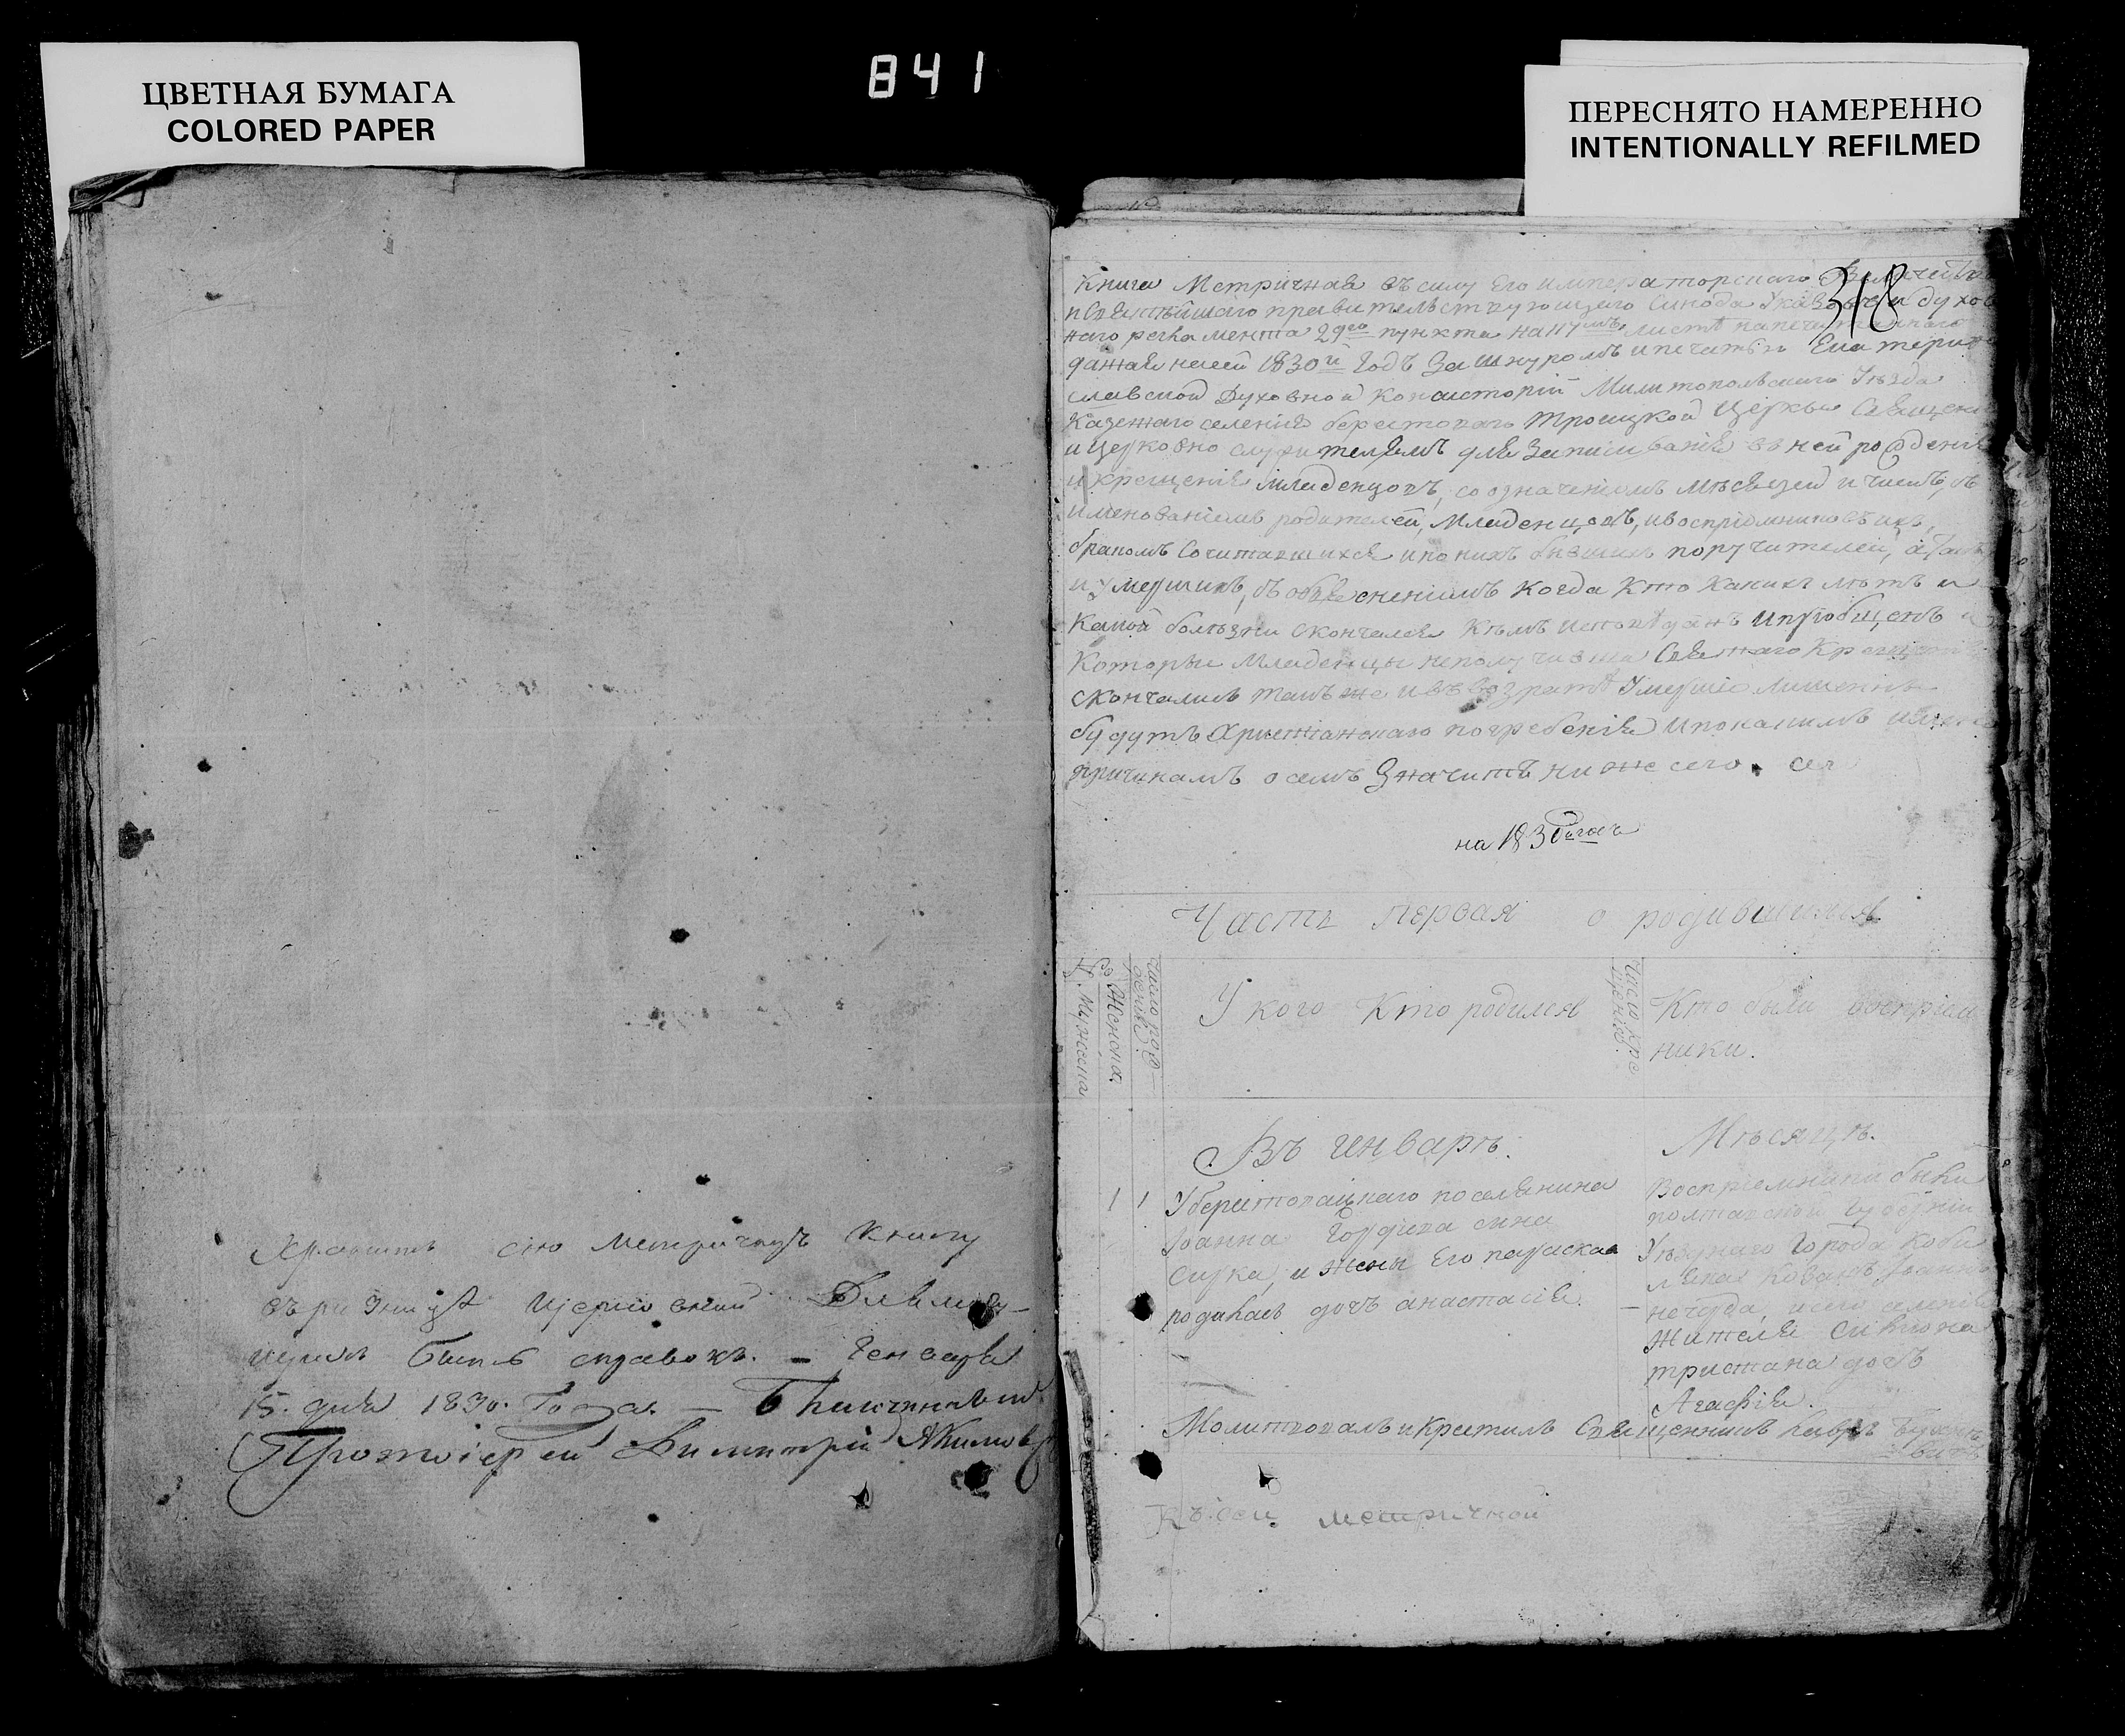 ЦВЕТНАЯ БУМАГА
COLORED PAPER
841
ПЕРЕСНЯТО НАМЕРЕННО
INTENTIONALLY REFILMED
Хранить сію метричную книгу
въ ризницѣ церковной для
быть справокъ. – Генваря
15. дня 1830. Года. –
Протоіерей Димитрій Якимовъ
318
Книга Метричная въ силу Его императорскаго
правительствующаго Синода духов
наго регламента 29го пункта на листѣ
данная 1830й Годъ За шнуромъ и печатью Екатерино
славской Духовной Консисторіи Милитопольскаго Уѣзда
Казеннаго селенія берестоваго Троицкой Церкви Священно
и церковно служителямъ для Записыванія въ ней рожденія
и крещенія младенцовъ, со означеніемъ мѣсяцей и чиселъ, съ
именованіемъ родителей, Младенцовъ, и воспріемниковъ ихъ,
бракомъ Сочитавшихся и по нихъ бывшихъ поручителей, а такъ
и умершихъ, съ объясненіемъ Когда Кто Какихъ лѣтъ и
Какой болѣзни скончался Кѣмъ исповѣданъ и пріобщенъ и
Которые Младенцы неполучивша Святаго Крещенія
скончались такъ же и въ возрастѣ Умершіе лишенны
будутъ Христіанскаго погребенія и по какимъ имен
причинамъ о семъ Значитъ ниже сего.
на 1830й годъ
Часть первая о родившихся
Мужеска
Женска
число рож
денія
У кого Кто родился
число кре
щенія
Кто были воспріем
ники.
Въ январѣ.
Мѣсяцѣ.
1 1 У берестовацкаго поселянина
Іоанна Гордіева сина
Сирка, и жены Его параскевы
родилась дочь анастасія.
Воспріемники были
полтавской Губерніи
Уѣзднаго Города Кобы
ляка Козакъ Іоаннъ
нечуда,
жителя Симіона
тристана дочь
Агафія.
Молитвовалъ и крестилъ Священникъ
Къ сей метричной